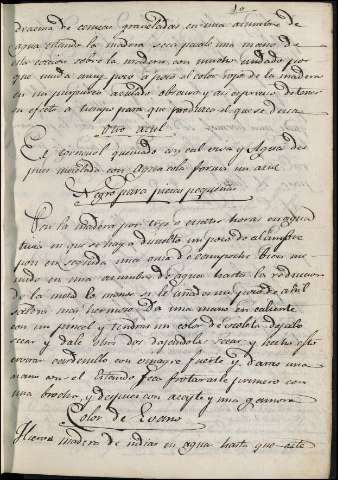 dracma de cenizas graveladas en una azumbre de
agua estando la madera seca pasale una mano de
esta coccion sobre la madera con mucho cuidado por
que muda muy poco a poco el color rojo de la madera
en un purpureo azulado obscuro y asi es preciso detener
su efecto a tiempo para que produzca el que se desea
Otro azul
El tornasol quemado con cal viva y Agua des
pues mezclado con Agua cola forma un azul
Negro para piezas pequeñas
Pon la madera por tres o cuatro horas en agua
tivia en que se haya disuelto un poco de alumbre
pon en seguida una onza de campeche bien me
nudo en una azumbre de agua hasta la reduccion
de la mitad lo menos se le añade un poco de añil
estara mas hermoso. Da una mano en caliente
con un pincel y tendras un color de violeta dejalo
secar y dale otras dos dejandolas secar y hecho esto
cocer cardenillo con vinagre fuerte y daras una
mano con el Estando seca frotarasle primero con
una brocha y despues con aceyte y una gamuza
Color de Evano
madera de indias en agua hasta que este